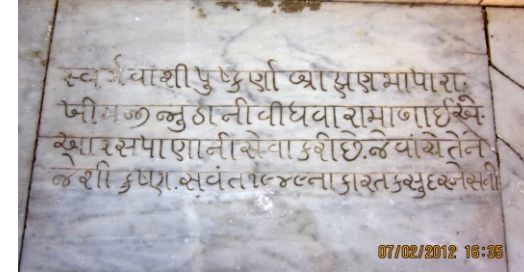 સ્વર્ગવાશી પુષ્કર્ણા બ્રાહ્મણ ભાપારા.
ખીમજી જુઠાની વીધવા રામાબાઈએ.
આરસપાણાની સેવા કરી છે. જે વાંચે તેને
જેશી કૃષ્ણ. સવંત ૧૯૪૯ના કારતક સુદ
07/02/2012 16:35